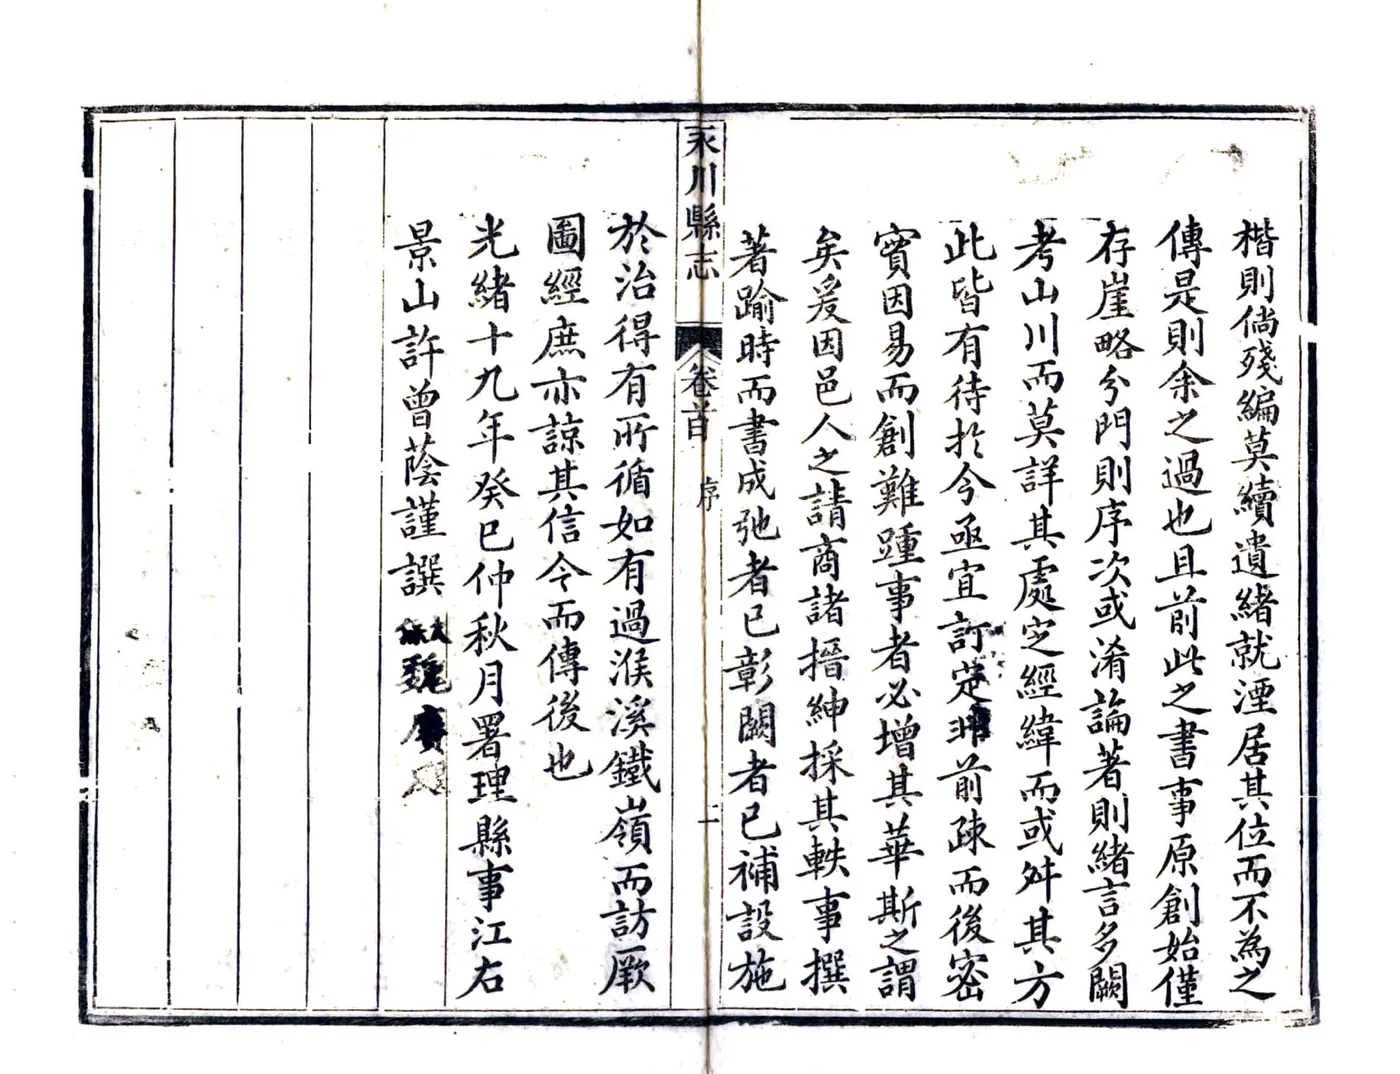 楷則倘殘編莫續遺緒就湮居其位而不為之
傳是則余之過也且前此之書事原創始僅
存崖略分門則序次或淆論著則緒言多闕
考山川而莫詳其處定經緯而或舛其方
此皆有待於今亟宜訂定非前疎而後密
實因易而創難踵事者必增其華斯之謂
矣爰因邑人之請商諸搢紳採其軼事撰
著踰時而書成弛者已彰闕者已補設施
永川縣志
卷首
序
二
於治得有所循如有過濮溪鐵嶺而訪厥
圖經庶亦諒其信今而傳後也
光緒十九年癸巳仲秋月署理縣事江右
景山許曾蔭謹譔